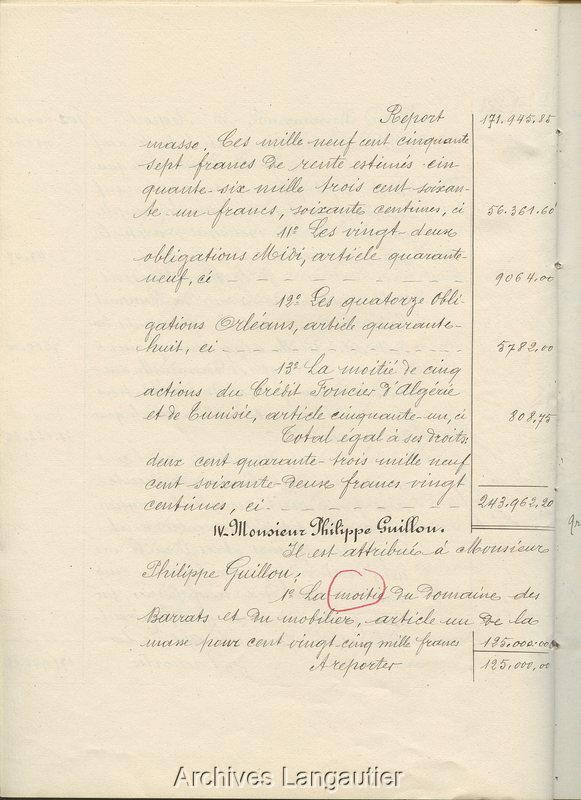 Report 171.945.85
masse, Ces mille neuf cent cinquante
sept francs de rente estimés cin-
quante-six mille trois cent soixan-
te un francs, soixante centimes, ci 56.361.60
11º Les vingt-deux
obligations Midi, article quarante-
neuf, ci 9064.00
12º Les quatorze obli-
gations Orléans, article quarante-
huit, ci 5782,00
13º La moitié de cinq
actions du Crédit Foncier d'Algérie
et de Tunisie, article cinquante-un, ci 808,75
Total égal à ses droits:
deux cent quarante-trois mille neuf
cent soixante-deux francs vingt
centimes, ci 243.962,20
IV_ Monsieur Philippe Guillon.
Il est attribué à Monsieur
Philippe Guillon;
1º La moitié du Domaine des
Barrats et du mobilier, article un de la
masse pour cent vingt cinq mille francs 125.000.00
A reporter 125.000,00
Archives Langautier